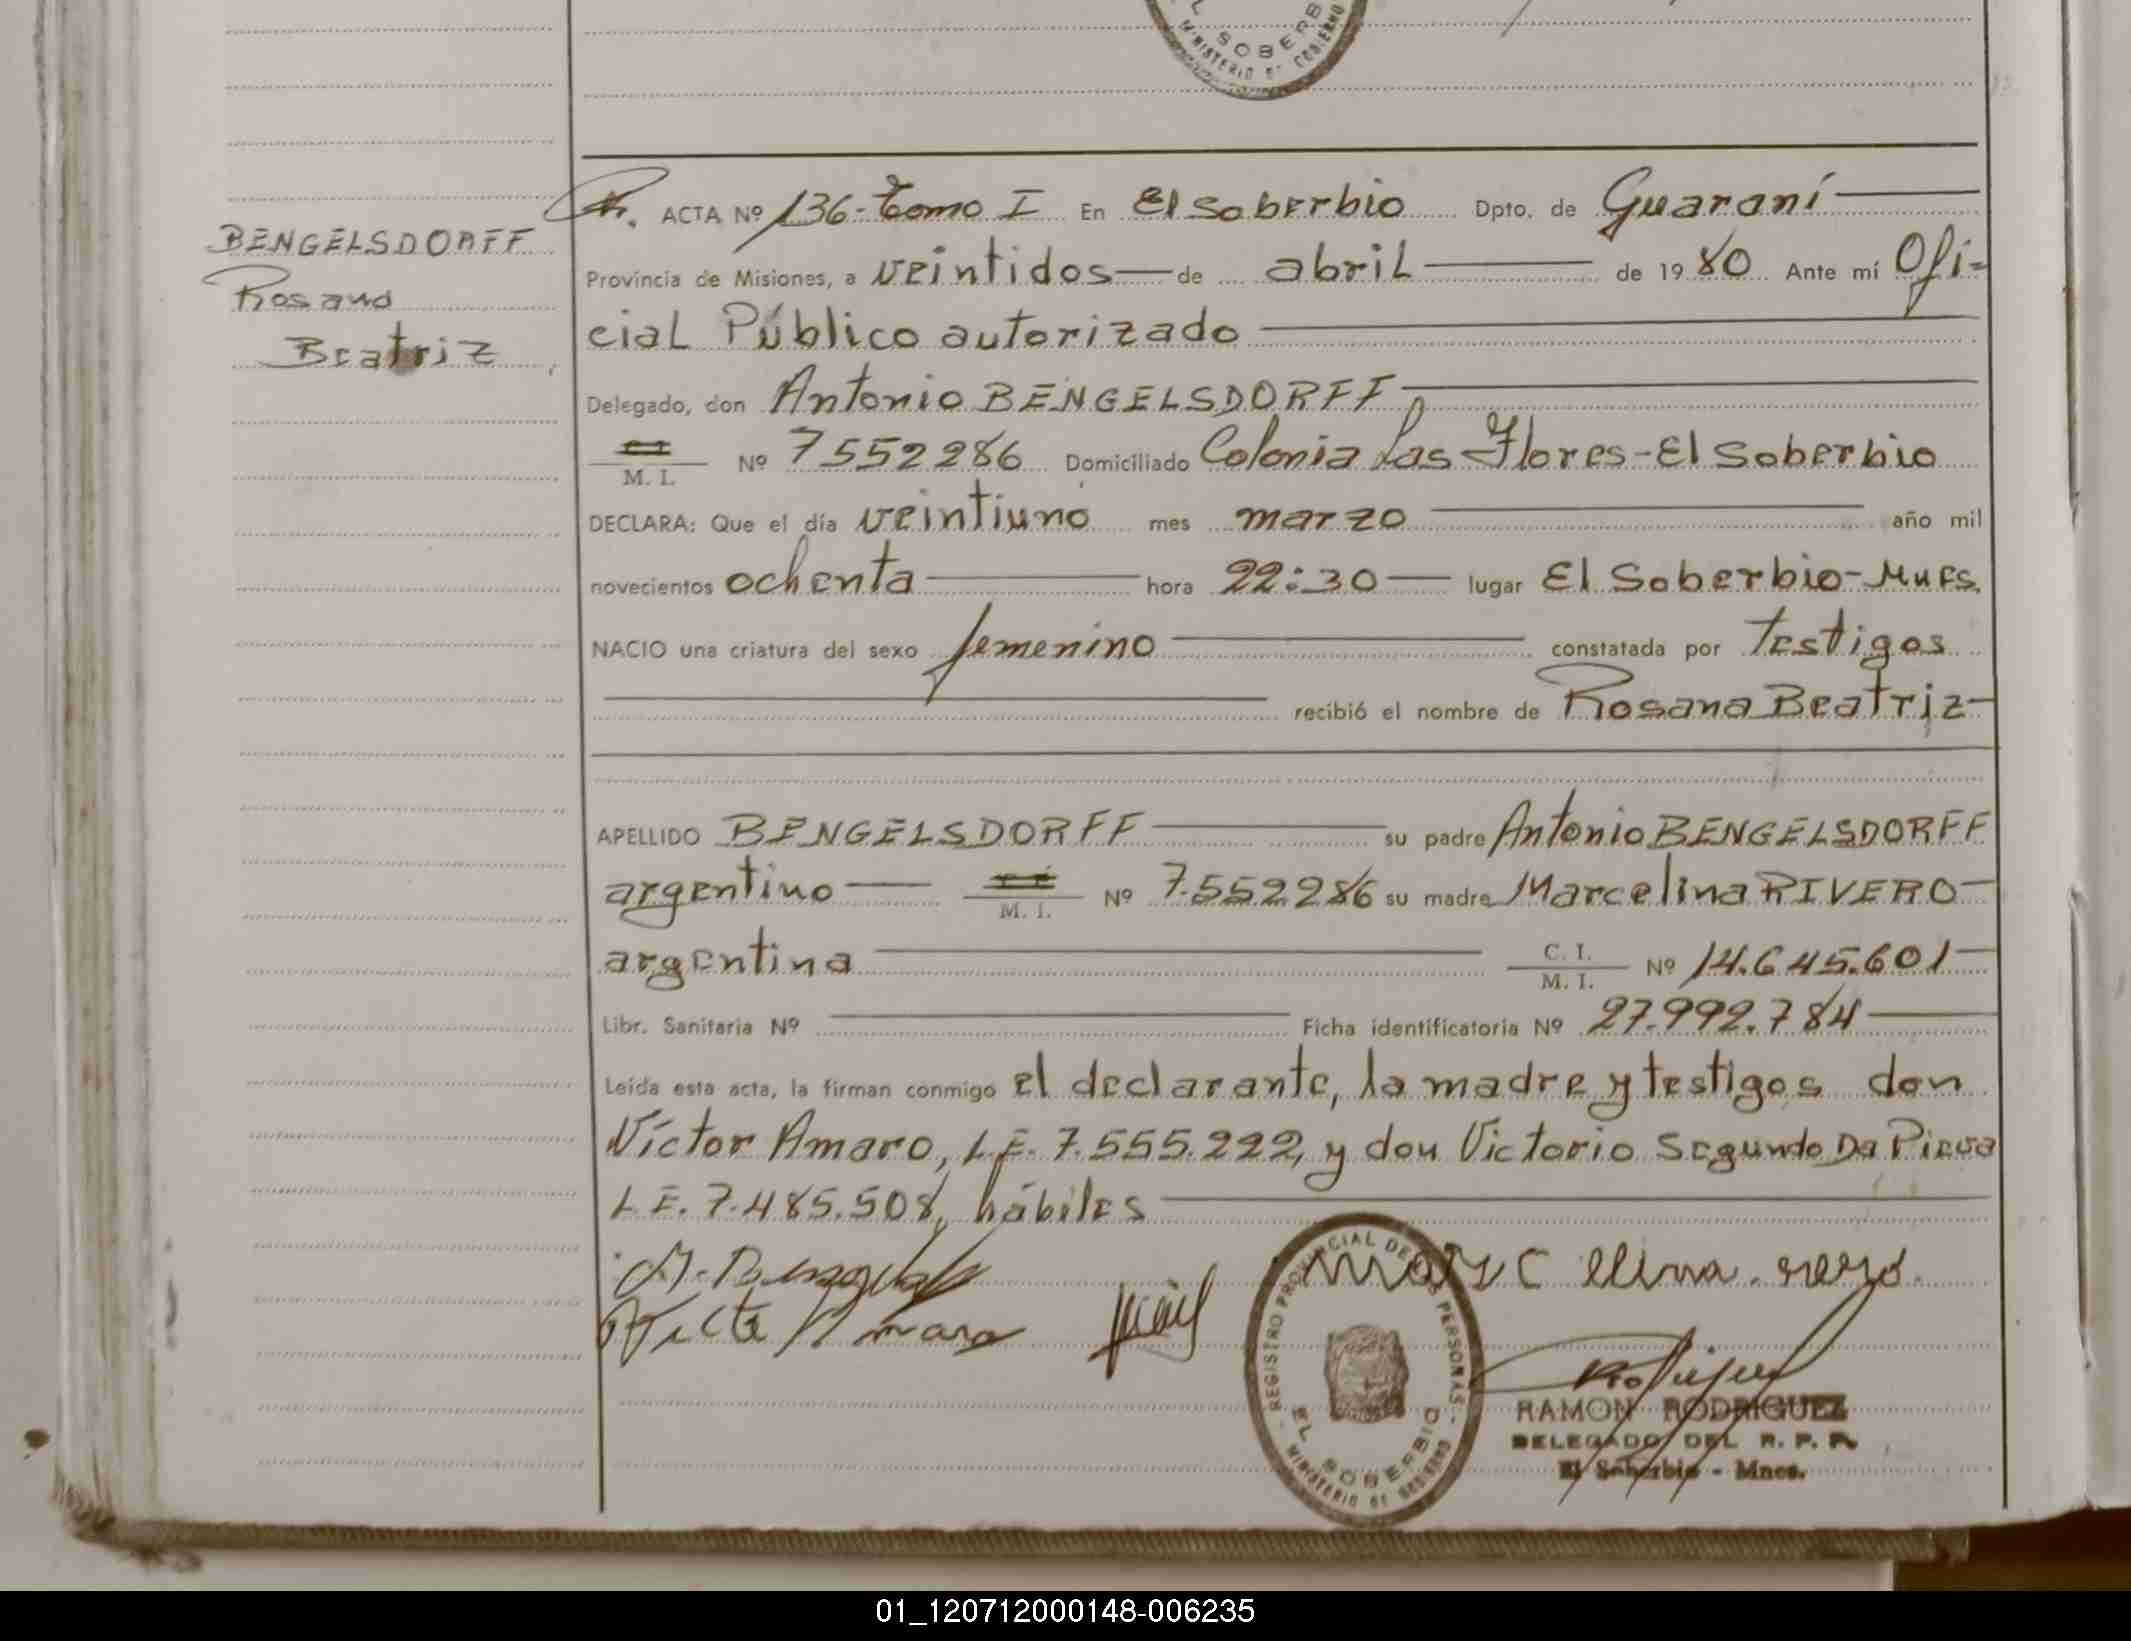 EL SOBERB
MINISTERIO DE GOBIERNO
BENGELSDORFF
Rosana
Beatriz
ACTA Nº 136-Tomo I En El Soberbio Dpto. de Guaraní
Provincia de Misiones, a veintidos de abril de 1980 Ante mí Ofi-
cial Público autorizado
Delegado, don Antonio BENGELSDORFF
M. I. Nº 7552286 Domiciliado Colonia Las Flores-El Soberbio
DECLARA: Que el día veintiuno mes marzo año mil
novecientos ochenta hora 22:30 lugar El Soberbio-Mnes.
NACIO una criatura del sexo femenino constatada por testigos
recibió el nombre de Rosana Beatriz
APELLIDO BENGELSDORFF su padre Antonio BENGELSDORFF
argentino M. I. Nº 7.552286 su madre Marcelina RIVERO
argentina C. I. M. I. Nº 14.645.601
Libr. Sanitaria Nº Ficha identificatoria Nº 27.992.784
Leída esta acta, la firman conmigo el declarante, la madre y testigos don
Víctor Amaro, L.E. 7.555.222, y don Victorio Segundo Da Pieva
L.E. 7.485.508, hábiles
REGISTRO PROVINCIAL DE LAS PERSONAS
EL SOBERBIO
MINISTERIO DE GOBIERNO
RAMON RODRIGUEZ
DELEGADO DEL R. P. P.
El Soberbio - Mnes.
01_120712000148-006235